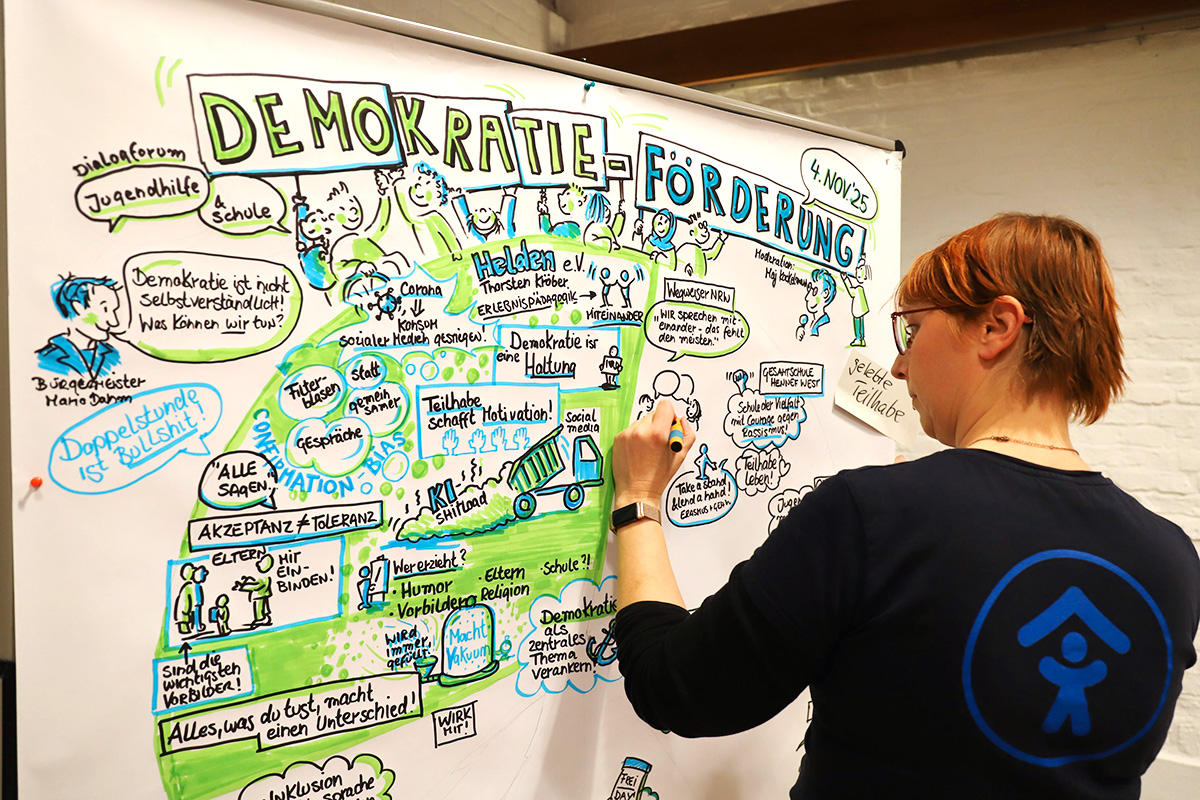 DEMOKRATIE-
FÖRDERUNG
4. NOV '25
Dialogforum
Jugendhilfe
& Schule
Demokratie ist nicht
Selbstverständlich!
Was können wir tun?
Bürgermeister
Mario Dahm
Doppelstunde
ist Bullshit!
Corona
Konsum
Sozialer Medien gestiegen.
Helden e.V.
Thorsten Kröber
ERLEBNISPÄDAGOGIK
MITEINANDER
Wegweiser NRW
"WIR SPRECHEN MIT-
EINANDER - das fehlt
den meisten."
Moderation:
Demokratie ist
eine Haltung
Filter-
blasen
statt
gemein
samer
Gespräche
CONFOMATION-BIAS
Teilhabe
schafft Motivation!
Social
media
KI
SHITLOAD
GESAMTSCHULE
HENNEF WEST
Schule der Vielfalt
mit Courage gegen
Rassismus!
Teilhabe
Leben!
Take a stand
& lend a hand!
gelebte
Teilhabe
"ALLE
SAGEN."
AKZEPTANZ ≠ TOLERANZ
ELTERN
MIT
EIN-
BINDEN!
SIND die
wichtigsten
VORBILDER!
Wer erzieht?
· Humor
· Vorbilder
· Eltern
Religion
· Schule?!
WIRD
immer
gefüllt.
Macht
Vakuum
Demokratie
als
zentrales
Thema
Verankern!
Alles, was du tust, macht
einen Unterschied!
WIRK
MIT!
Inklusion
FREI
DAY